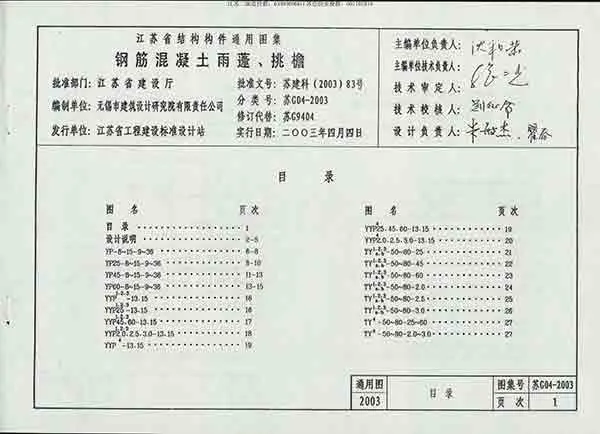 江苏省结构构件通用图集
钢筋混凝土雨蓬、挑檐
批准部门: 江苏省建设厅
批准文号: 苏建科(2003)83号
编制单位: 无锡市建筑设计研究院有限责任公司
分类号: 苏G04-2003
修订代替: 苏G9404
发行单位: 江苏省工程建设标准设计站
实行日期: 二〇〇三年四月四日
主编单位负责人:
主编单位技术负责人:
技术审定人:
技术校核人:
设计负责人:
目录
图名 页次
目录 1
设计说明 2-5
YP-8-15-9-36 6-8
YP25-8-15-9-36 8-10
YP45-8-15-9-36 11-13
YP60-8-15-9-36 13-15
YYP1·2·3-13.15 16
YYP25 1·2·3-13.15 16
YYP45.60-13.15 17
YYP2.0.2.5.3.0-13.15 18
YYP4-13.15 19
图名 页次
YYP25.45.60-13.15 19
YYP2.0.2.5.3.0-13.15 20
-50-80-25 21
-50-80-45 22
-50-80-60 23
-50-80-2.0 24
-50-80-2.5 25
-50-80-3.0 26
TY4-50-80-25-60 27
TY4-50-80-2.0-3.0 27
通用图 2003
目录
图集号 苏G04-2003
页次 1